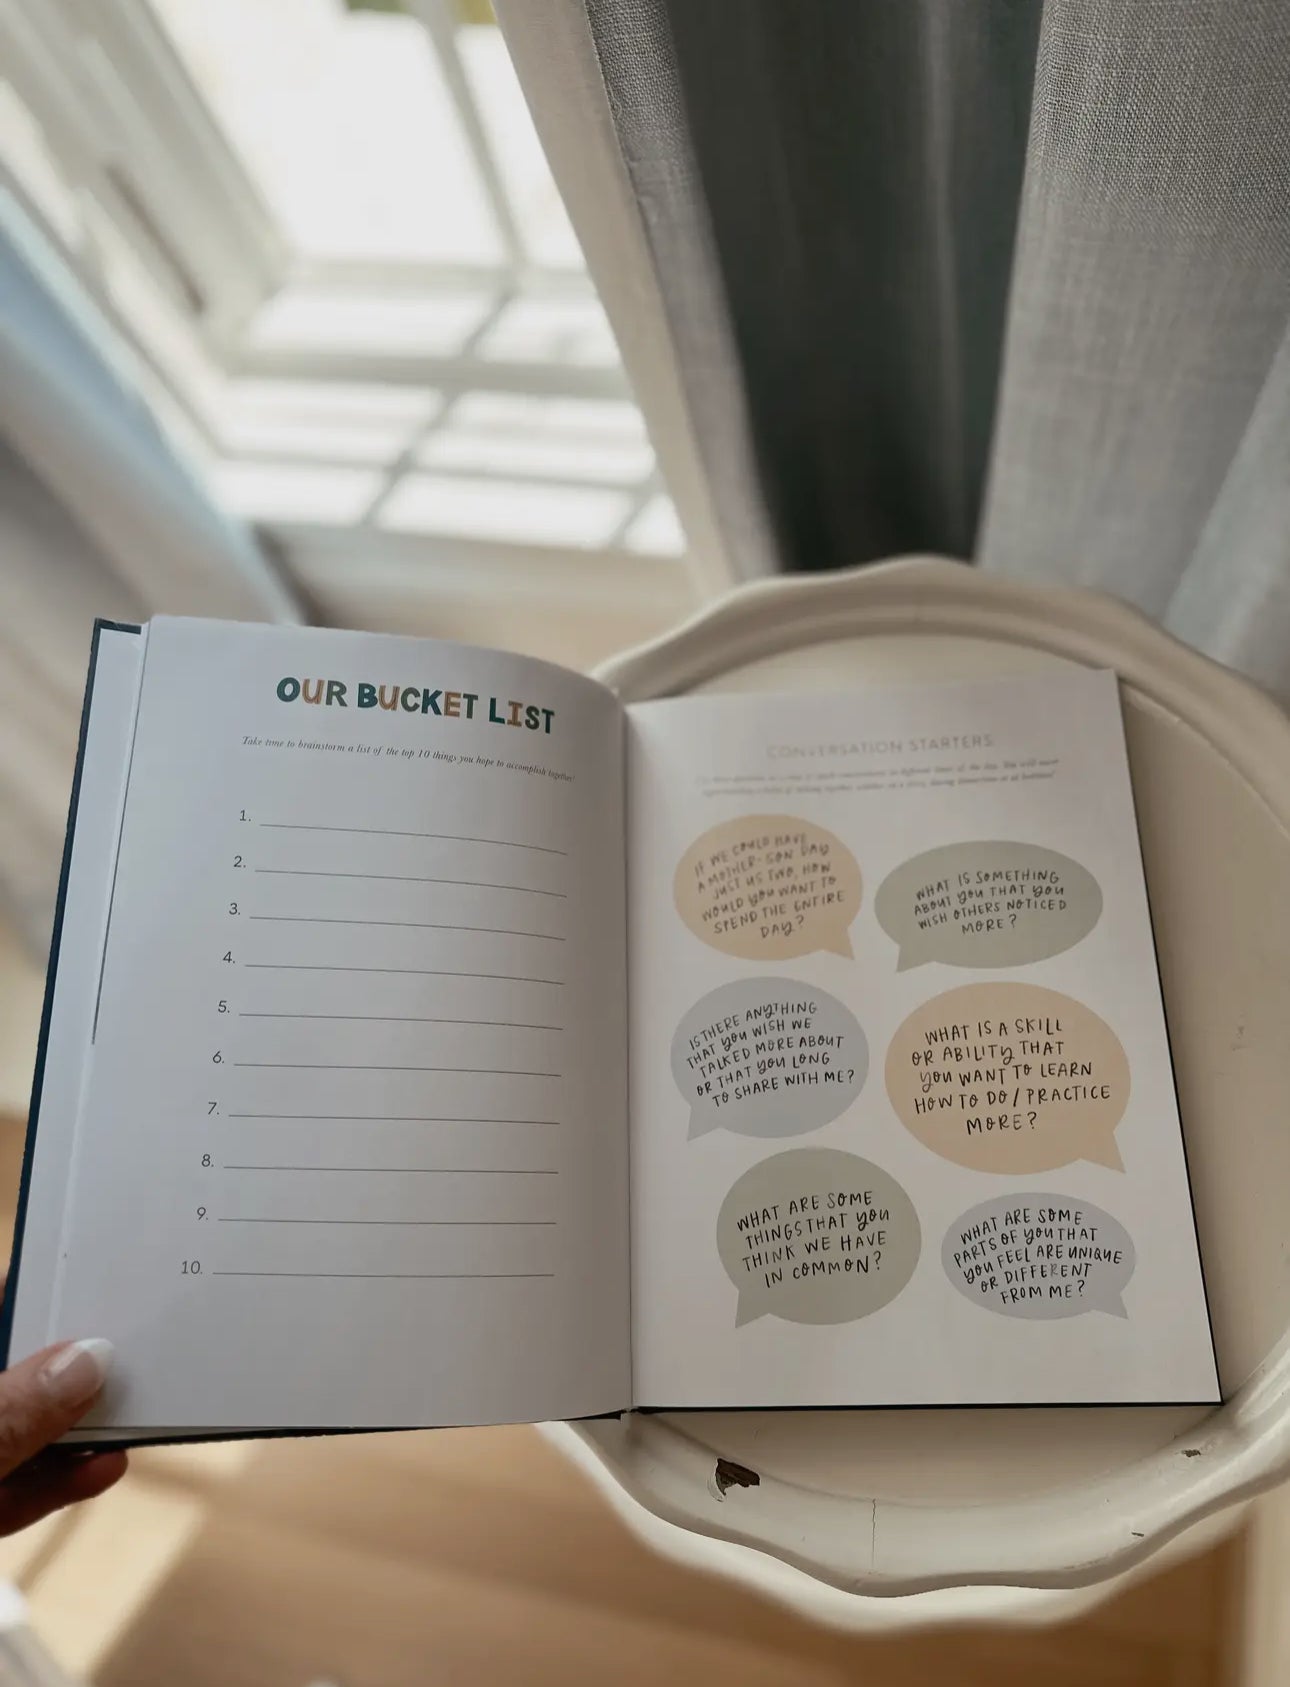 OUR BUCKET LIST
Take time to brainstorm a list of the top 10 things you hope to accomplish together!
1.
2.
3.
4.
5.
6.
7.
8.
9.
10.
CONVERSATION STARTERS
IF WE COULD HAVE
A MOTHER-SON DAY
JUST US TWO, HOW
WOULD YOU WANT TO
SPEND THE ENTIRE
DAY?
WHAT IS SOMETHING
ABOUT YOU THAT YOU
WISH OTHERS NOTICED
MORE?
IS THERE ANYTHING
THAT YOU WISH WE
TALKED MORE ABOUT
OR THAT YOU LONG
TO SHARE WITH ME?
WHAT IS A SKILL
OR ABILITY THAT
YOU WANT TO LEARN
HOW TO DO / PRACTICE
MORE?
WHAT ARE SOME
THINGS THAT YOU
THINK WE HAVE
IN COMMON?
WHAT ARE SOME
PARTS OF YOU THAT
YOU FEEL ARE UNIQUE
OR DIFFERENT
FROM ME?